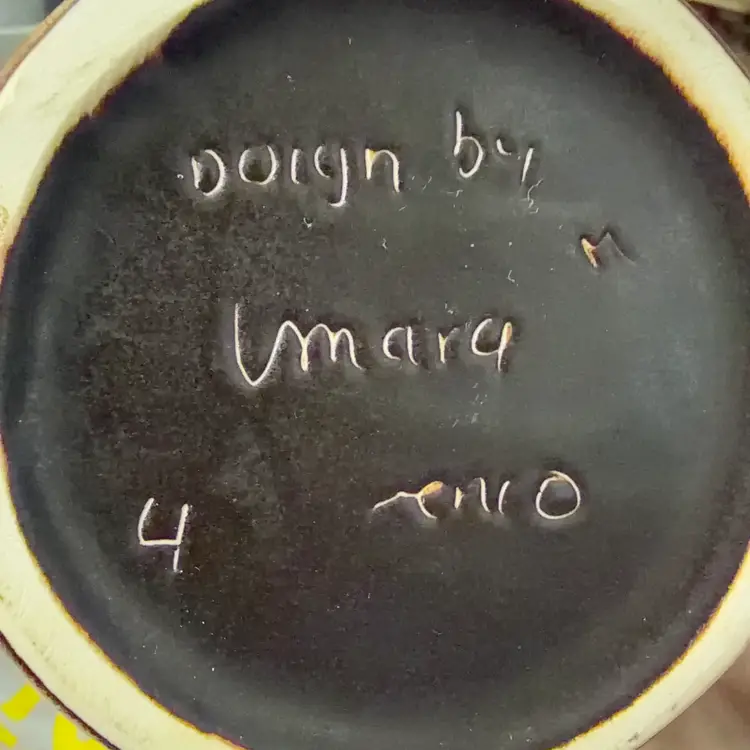 Doign by
M
Umara
4 enco